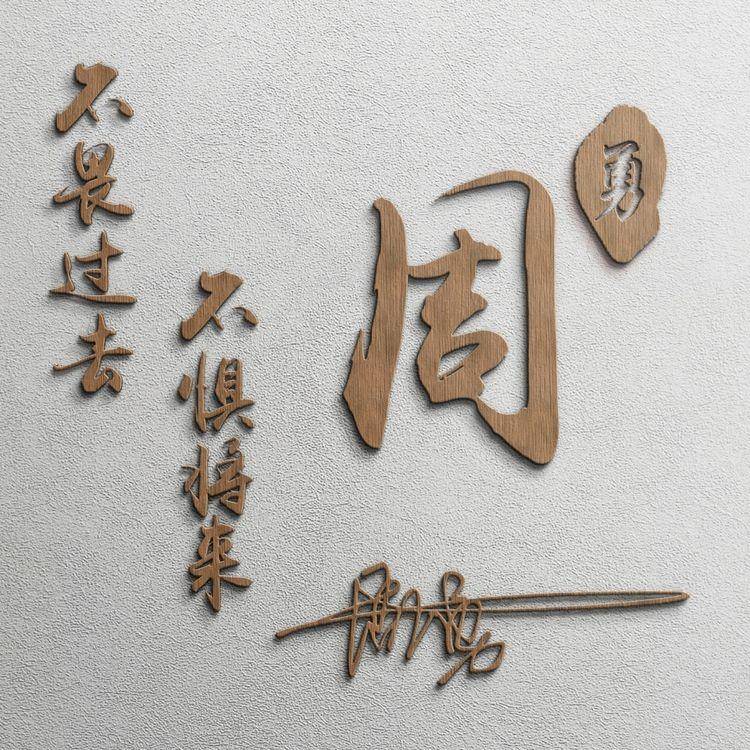 不畏过去
不惧将来
周
勇
周勇